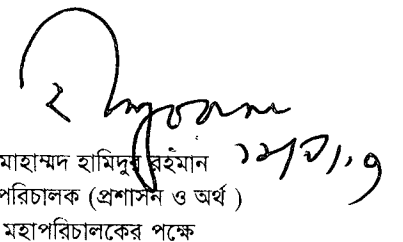 মাহাম্মদ হামিদুর রহমান
পরিচালক (প্রশাসন ও অর্থ )
মহাপরিচালকের পক্ষে